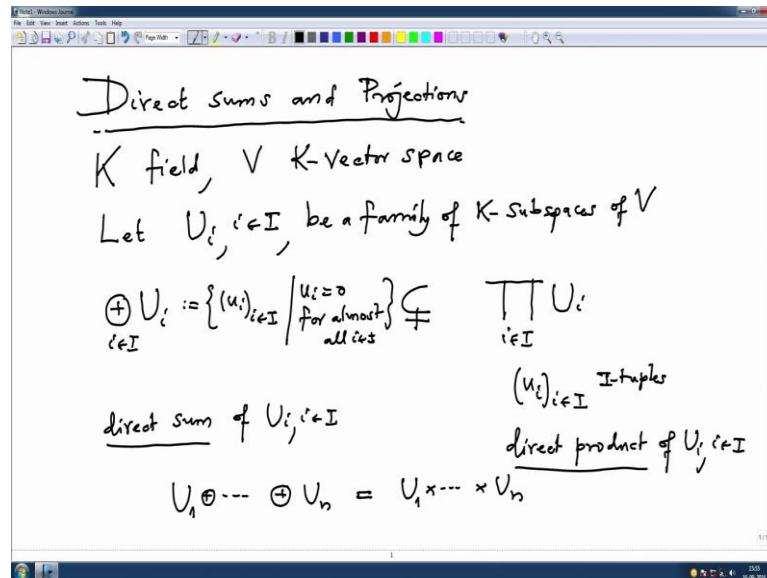 Note1 - Windows Journal
File Edit View Insert Actions Tools Help
Page Width
B I
Direct sums and Projections
K field, V K-vector space
Let U_i, i∈I, be a family of K-subspaces of V
⊕_{i∈I} U_i := {(u_i)_{i∈I} | u_i=0 for almost all i∈I} ⊊ ∏_{i∈I} U_i
(u_i)_{i∈I} I-tuples
direct sum of U_i, i∈I
direct product of U_i, i∈I
U_1 ⊕ --- ⊕ U_n = U_1 × --- × U_n
1/1
1
15:55